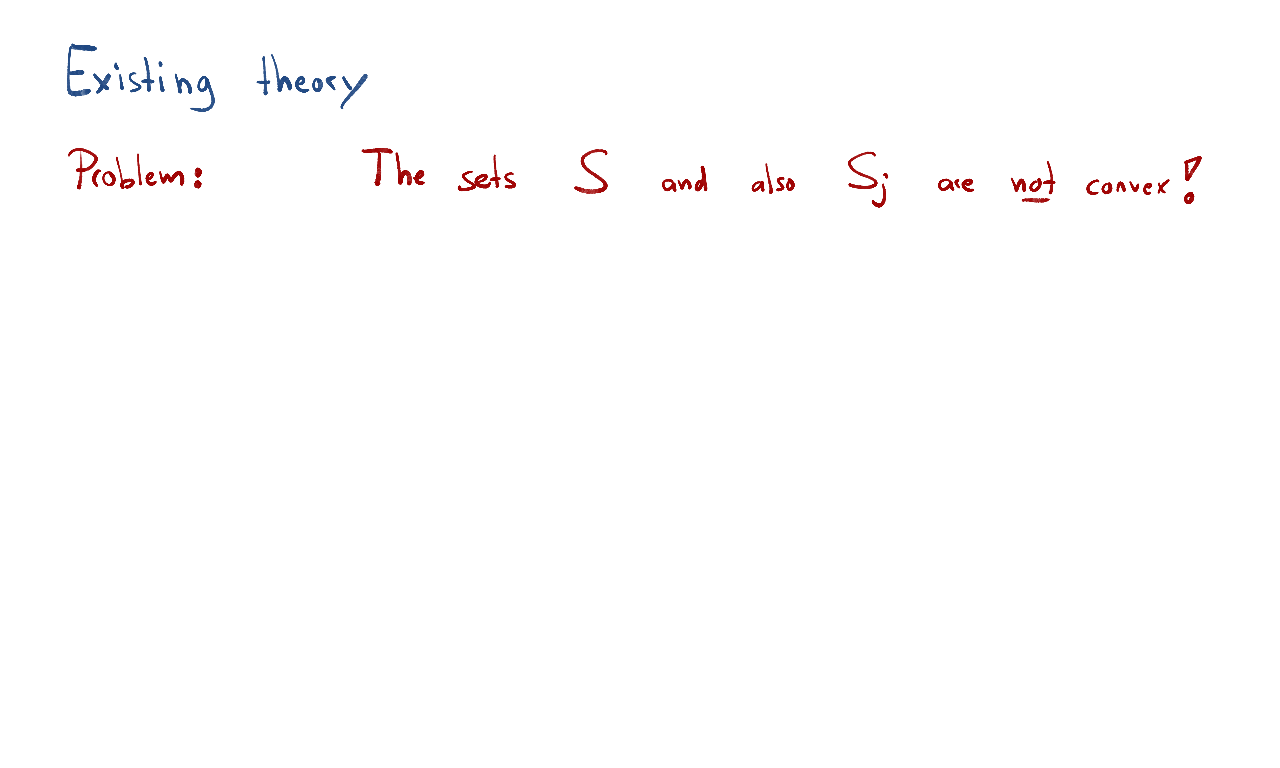 Existing theory
Problem: The sets S and also Sj are not convex!